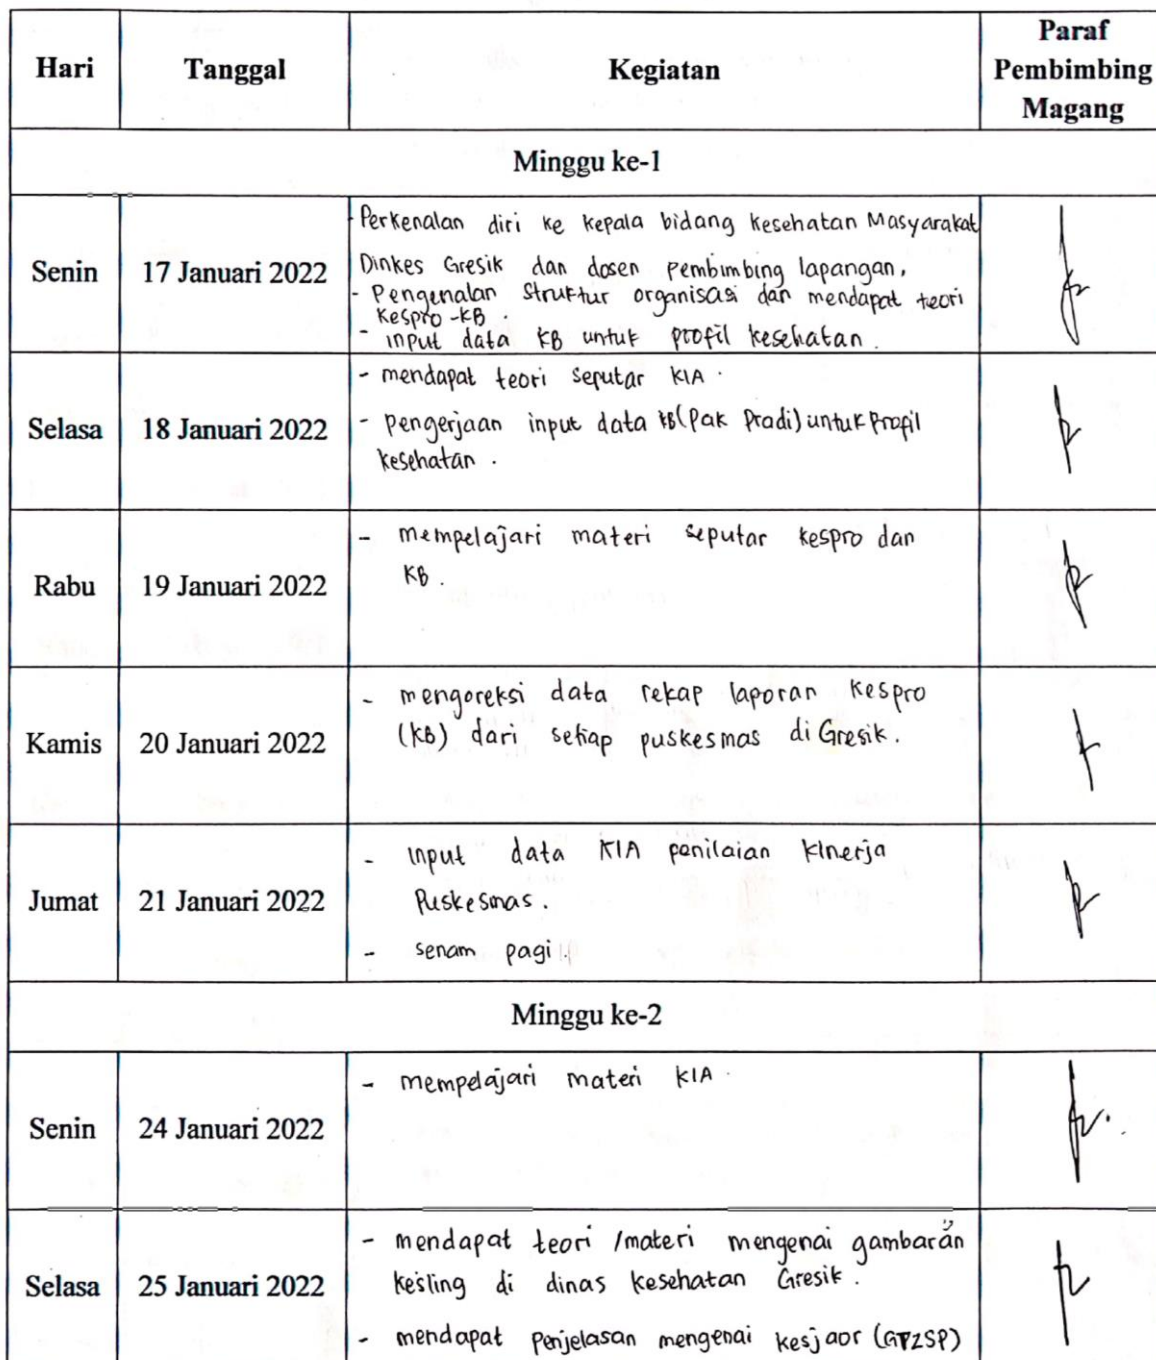 Hari Tanggal Kegiatan Paraf Pembimbing Magang
Minggu ke-1
Senin 17 Januari 2022
- Perkenalan diri ke kepala bidang kesehatan Masyarakat
Dinkes Gresik dan dosen pembimbing lapangan.
- Pengenalan Struktur organisasi dan mendapat teori
Kespro-KB.
- input data KB untuk profil kesehatan.
Selasa 18 Januari 2022
- mendapat teori seputar KIA.
- pengerjaan input data KB (Pak Pradi) untuk Profil
kesehatan.
Rabu 19 Januari 2022
- mempelajari materi seputar kespro dan
KB.
Kamis 20 Januari 2022
- mengoreksi data rekap laporan kespro
(KB) dari setiap puskesmas di Gresik.
Jumat 21 Januari 2022
- Input data KIA penilaian kinerja
Puskesmas.
- senam pagi.
Minggu ke-2
Senin 24 Januari 2022
- mempelajari materi KIA.
Selasa 25 Januari 2022
- mendapat teori /materi mengenai gambaran
kesling di dinas kesehatan Gresik.
- mendapat penjelasan mengenai kesjaor (GP2SP)